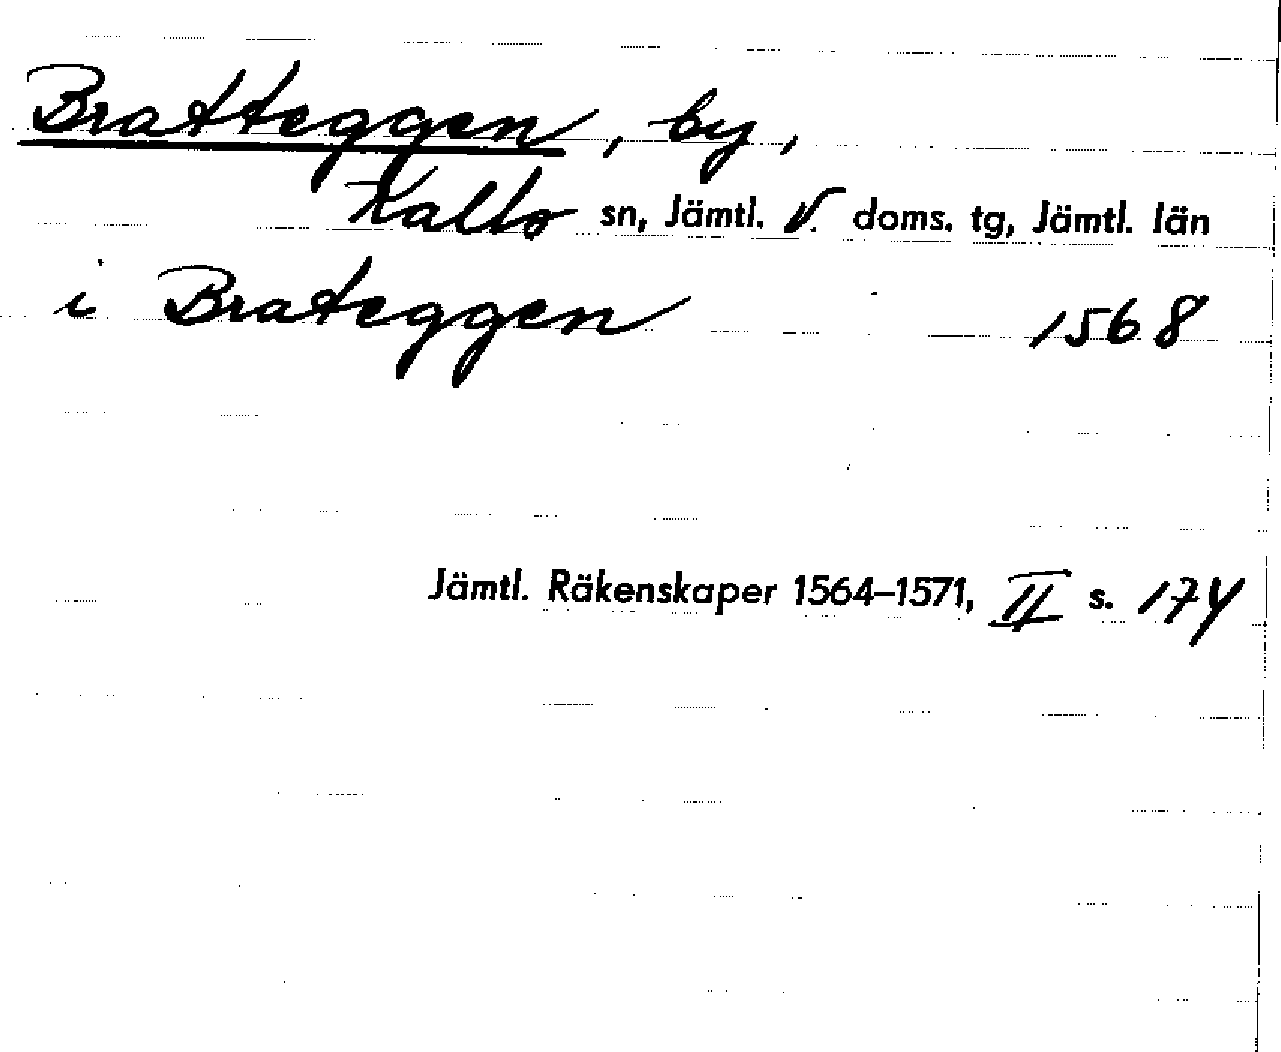 Bratteggen, by,
Kalls sn, Jämtl. V. doms. tg, Jämtl. län
i Brateggen 1568
Jämtl. Räkenskaper 1564–1571, II s. 174